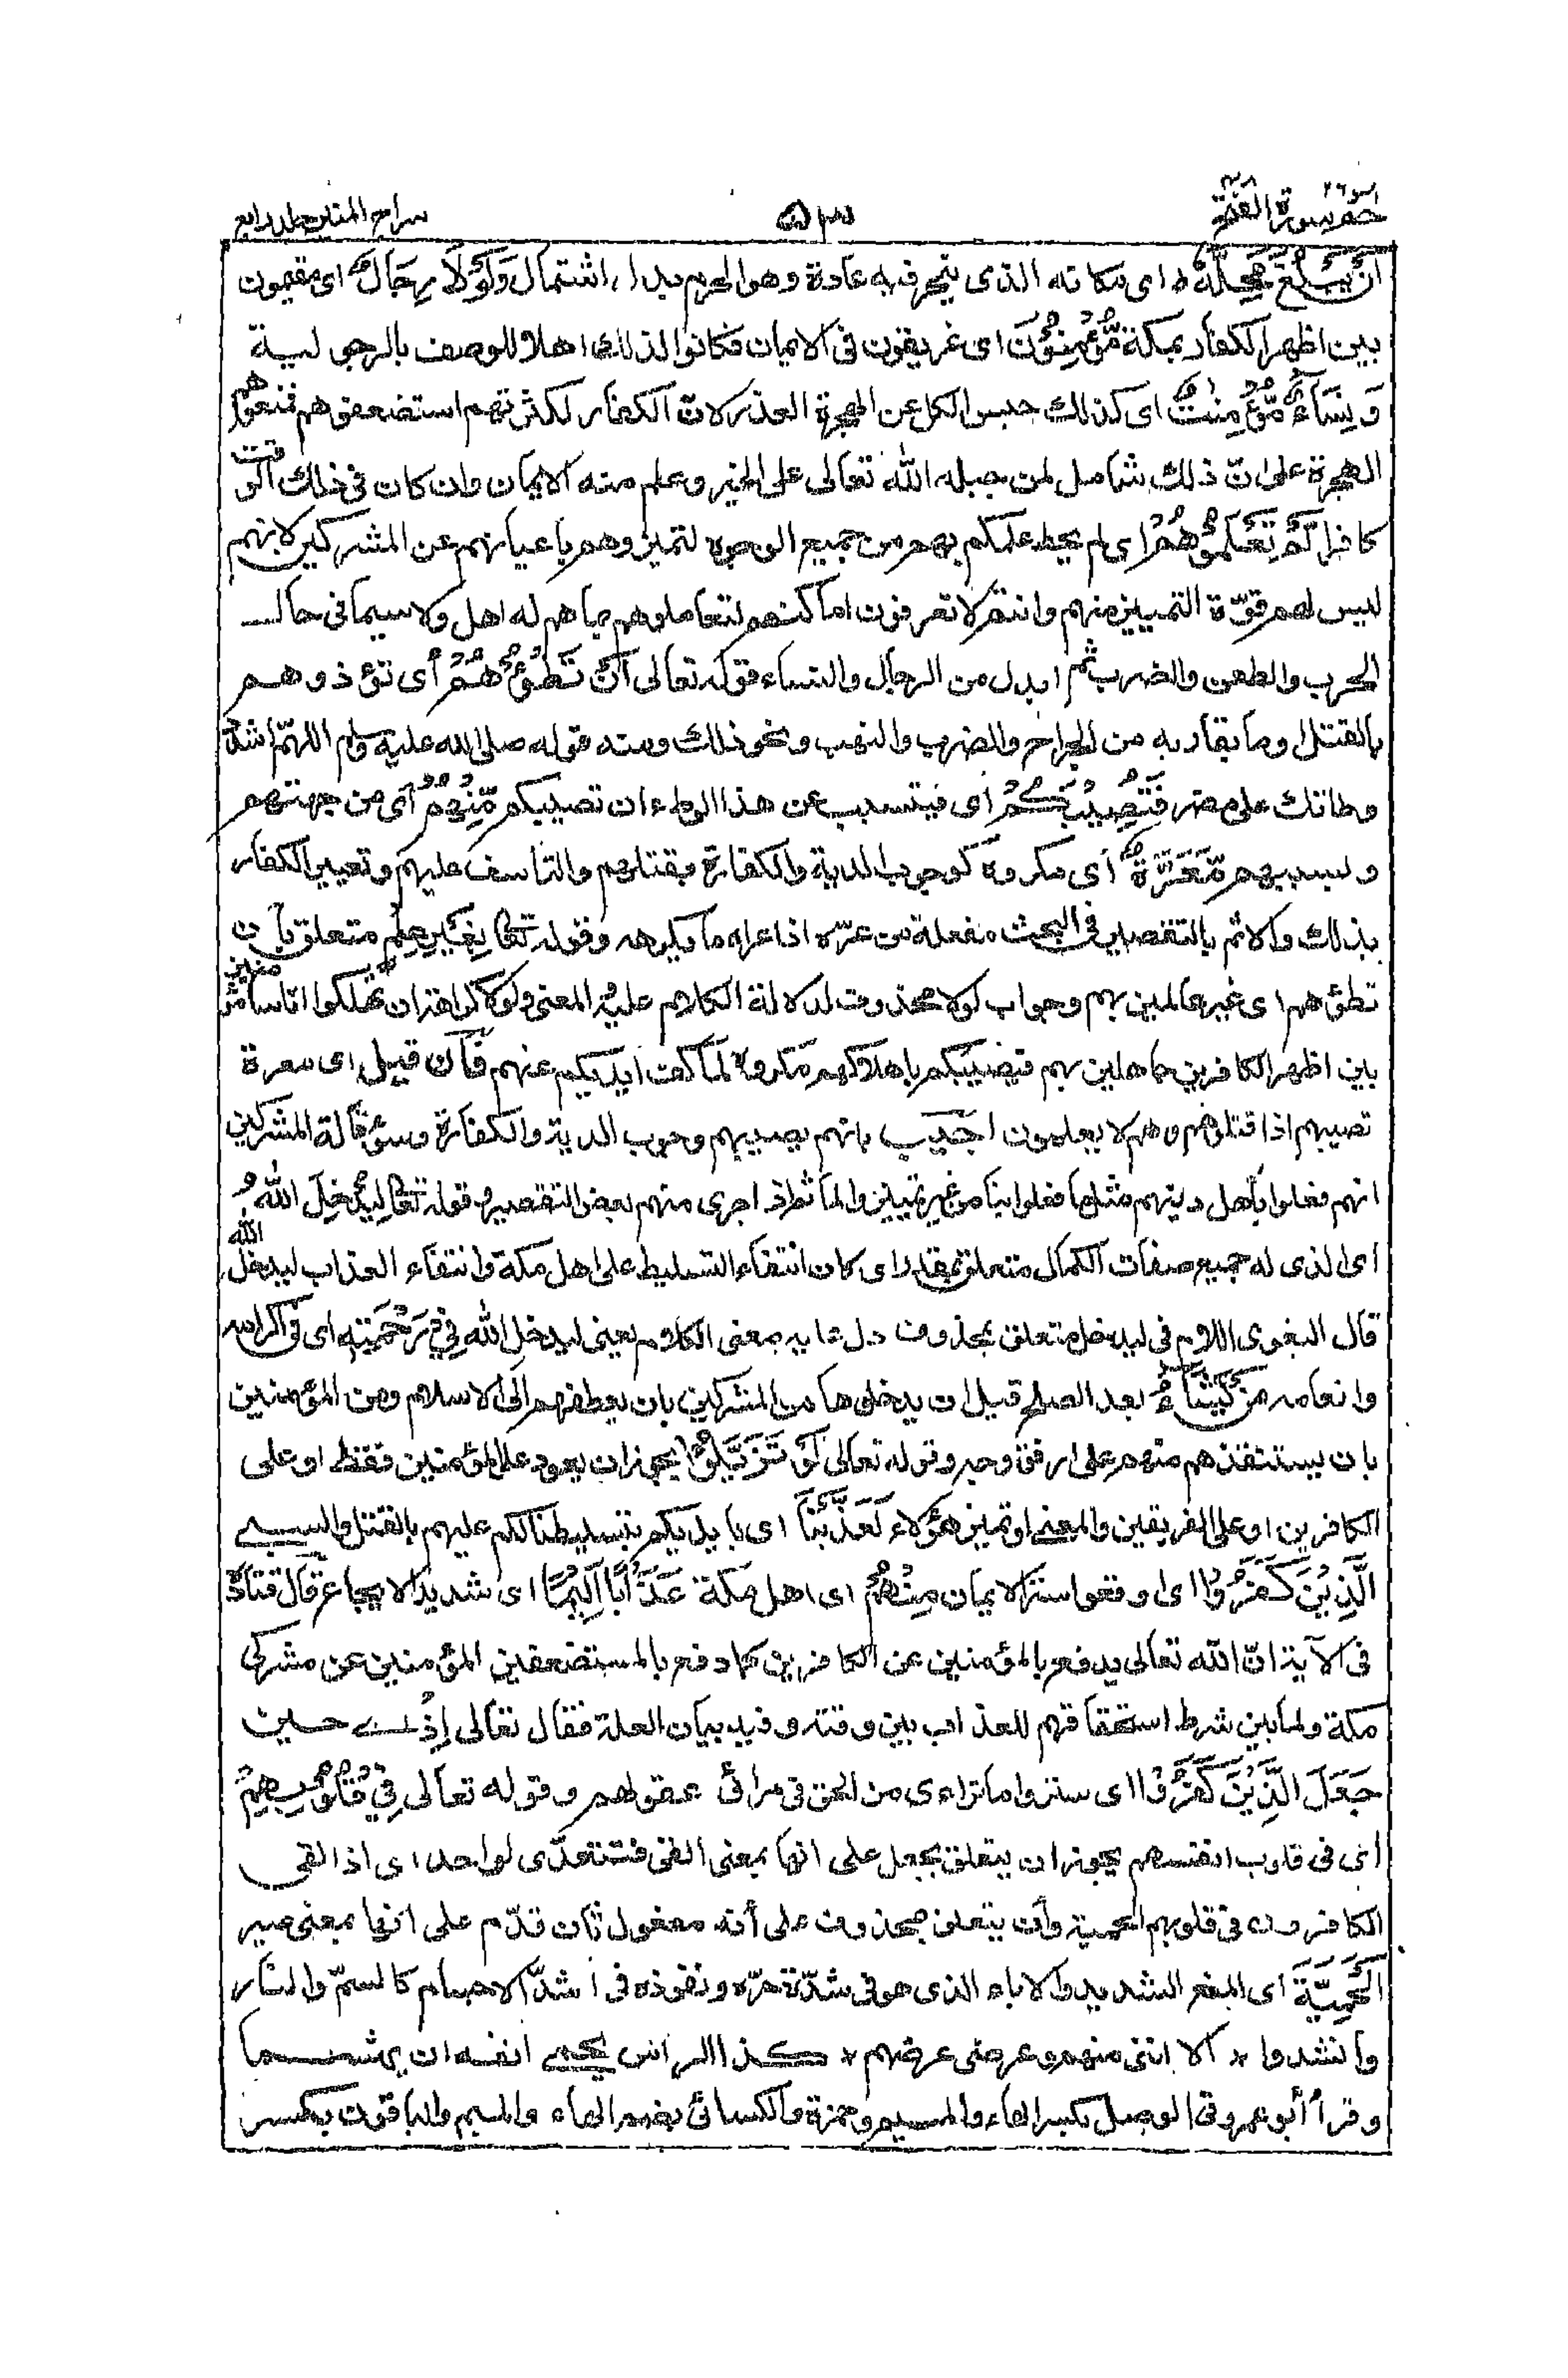 حم ٢٦ سورة الفتح ٤٨
٥٣
سراج المنير جلد رابع
اَنْ يَّبْلُغَ مَحِلَّهٗ ط اى مكانه الذى ينحر فيه عادة وهو الحرم بدل اشتمال وَلَوْلَا رِجَالٌ اى مقيمون
بين اظهر الكفار بمكة مُّؤْمِنُوْنَ اى غريقون فى الايمان فكانوا لذلك اهلا للوصف بالرجولية
وَنِسَآءٌ مُّؤْمِنٰتٌ اى كذلك حبس الكل عن الهجرة العذر لانّ الكفار لكثرتهم استضعفوهم فمنعوهم
الهجرة على انّ ذلك شامل لمن جبله الله تعالى على الخير وعلم منه الايمان وان كان فى ذلك الوقت
كافرا لَّمْ تَعْلَمُوْهُمْ اى لم يحط علمكم بهم من جميع الوجوه لتميزوهم باعيانهم عن المشركين لانهم
ليس لهم قوّة التمييز منهم وانتم لا تعرفون اماكنهم لتعاملوهم بما هم له اهل ولا سيما فى حال
الحرب والطعن والضرب ثم ابدل من الرجال والنساء قوله تعالى اَنْ تَطَـُٔوْهُمْ أى تؤذوهم
بالقتل وما يقاربه من الجراح والضرب والنهب ونحو ذلك ومنه قوله صلى الله عليه وسلم اللهمّ اشدد
وطاتك على مضر فَتُصِيْبَكُمْ أى فيتسبب عن هذا الوطء ان تصيبكم مِّنْهُمْ أى من جهتهم
وبسببهم مَّعَرَّةٌ أى مكروه كوجوب الدية والكفارة بقتلهم والتاسف عليهم وتعيير الكفار
بذلك والاثم بالتقصير فى البحث مفعلة من عرّه اذا عراه ما يكرهه وقوله تعالى بِغَيْرِ عِلْمٍ متعلق بأن
تطؤهم اى غير عالمين بهم وجواب لولا محذوف لدلالة الكلام عليه والمعنى ولولا كراهة ان تهلكوا اناسا مؤمنين
بين اظهر الكافرين جاهلين بهم فيصيبكم باهلاكهم مكروه لما كف ايديكم عنهم فان قيل اى معرة
تصيبهم اذا قتلوهم وهم لا يعلمون اجيب بانهم يصيبهم وجوب الدية والكفارة وسوء قالة المشركين
انهم فعلوا بأهل دينهم مثل ما فعلوا بنا من غير تمييز والماثم اذا جرى منهم بعض التقصير وقوله تعالى لِيُدْخِلَ اللّٰهُ
اى الذى له جميع صفات الكمال متعلق بمقدر اى كان انتفاء التسليط على اهل مكة وانتفاء العذاب ليدخل الله
قال البغوى اللام فى ليدخل متعلق بمحذوف دل عليه معنى الكلام يعنى ليدخل الله فِيْ رَحْمَتِهٖ اى فى اكرامه
وانعامه مَنْ يَّشَآءُ بعد الصلح قبل ان يدخلوها من المشركين بان يعطفهم الى الاسلام ومن المؤمنين
بان يستنقذهم منهم على ارفق وجه وقوله تعالى لَوْ تَزَيَّلُوْا يجوز ان يعود على المؤمنين فقط او على
الكافرين او على الفريقين والمعنى لو تميز هؤلاء لَعَذَّبْنَا اى بايديكم بتسليطنا لكم عليهم بالقتل والسبى
الَّذِيْنَ كَفَرُوْا اى اوقعوا ستر الايمان مِنْهُمْ اى اهل مكة عَذَابًا اَلِيْمًا اى شديد الايجاع قال قتادة
فى الآية انّ الله تعالى يدفع بالمؤمنين عن الكافرين كما دفع بالمستضعفين المؤمنين عن مشركى
مكة ولما بين شرط استحقاقهم للعذاب بين وقته وفيه بيان العلة فقال تعالى اِذْ حين
جَعَلَ الَّذِيْنَ كَفَرُوْا اى ستروا ما تراءى من الحق فى مرائى عقولهم وقوله تعالى فِيْ قُلُوْبِهِمْ
اى فى قلوب انفسهم يجوز ان يتعلق بجعل على انها بمعنى القى فتتعدّى لواحد اى اذ القى
الكافرون فى قلوبهم الحمية وأن يتعلق بمحذوف على أنه مفعول ثان قدّم على انها بمعنى صير
الْحَمِيَّةَ اى المنع الشديد والاباء الذى هو فى شدّة حرّه ونفوذه فى اشدّ الاجسام كالسمّ والنار
وانشدوا * الا اننى منهم وعرضى عرضهم * كذا الراس يحمى انفه ان يهشما
وقرأ أبو عمرو فى الوصل بكسر الهاء والميم وحمزة والكسائى بضم الهاء والميم والباقون بكسر